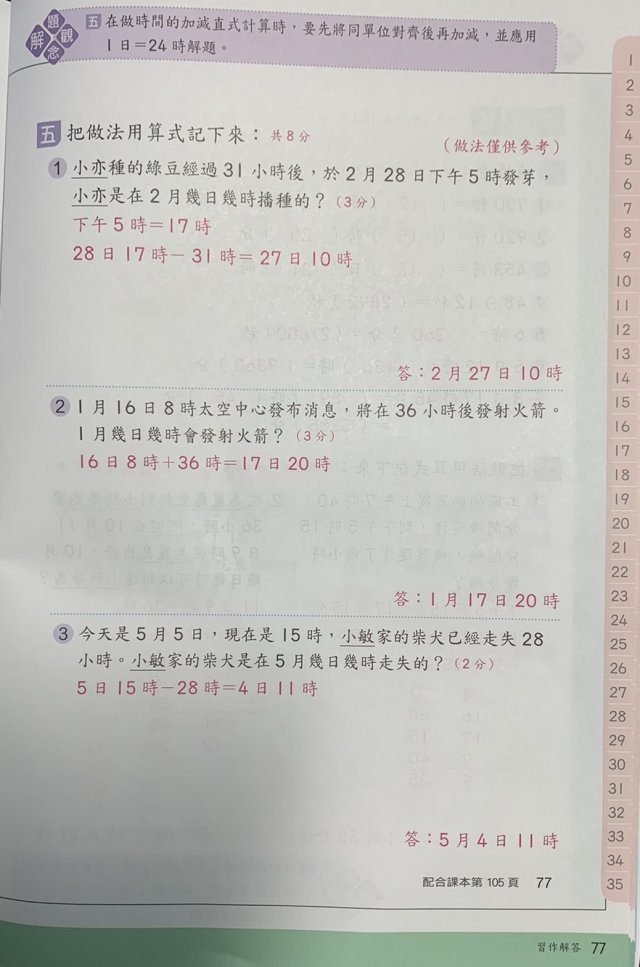 解題觀念
五 在做時間的加減直式計算時，要先將同單位對齊後再加減，並應用
1日=24時解題。
五 把做法用算式記下來：共8分
（做法僅供參考）
1 小亦種的綠豆經過31小時後，於2月28日下午5時發芽，
小亦是在2月幾日幾時播種的？（3分）
下午5時=17時
28日17時－31時=27日10時
答：2月27日10時
2 1月16日8時太空中心發布消息，將在36小時後發射火箭。
1月幾日幾時會發射火箭？（3分）
16日8時＋36時=17日20時
答：1月17日20時
3 今天是5月5日，現在是15時，小敏家的柴犬已經走失28
小時。小敏家的柴犬是在5月幾日幾時走失的？（2分）
5日15時－28時=4日11時
答：5月4日11時
配合課本第105頁 77
習作解答 77
1
2
3
4
5
6
7
8
9
10
11
12
13
14
15
16
17
18
19
20
21
22
23
24
25
26
27
28
29
30
31
32
33
34
35